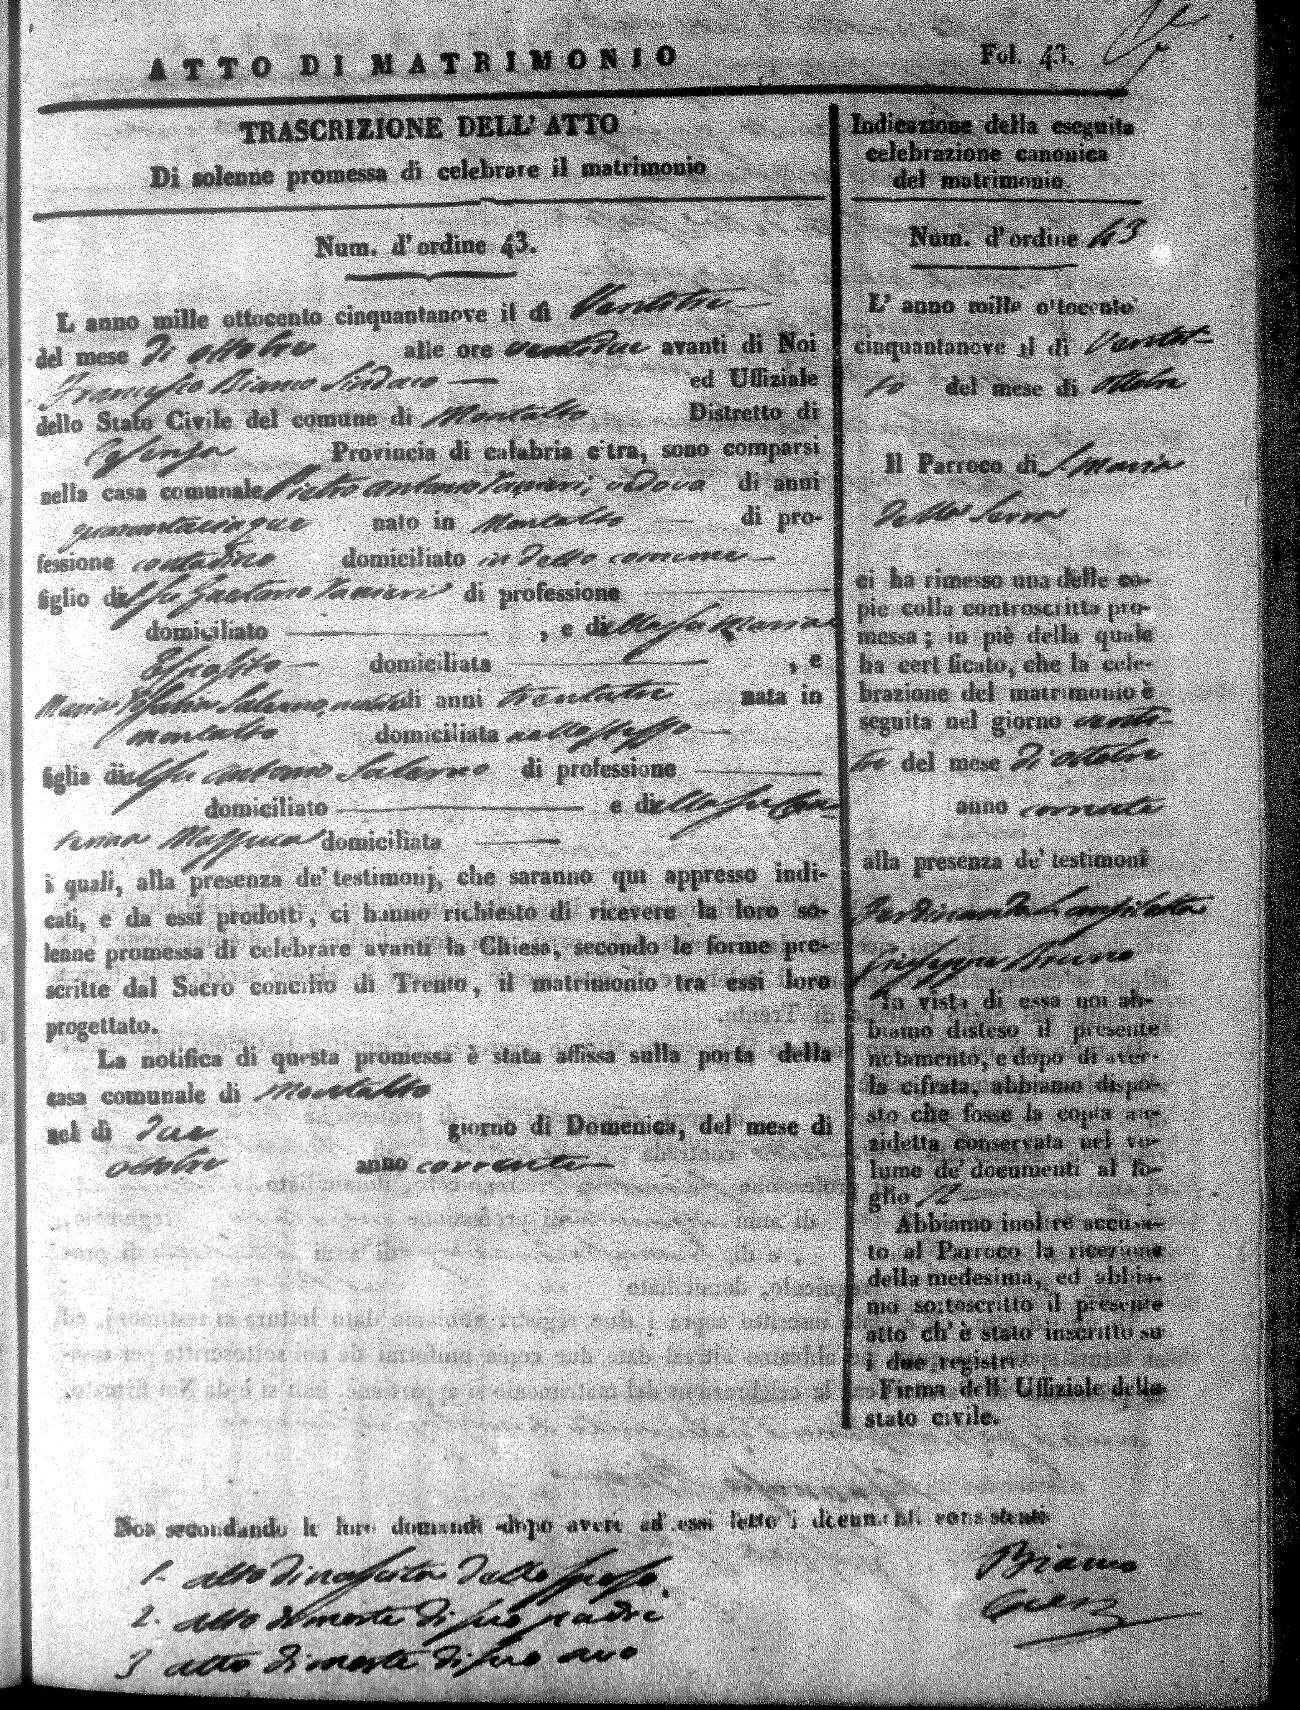 ATTO DI MATRIMONIO
Fol. 43.
TRASCRIZIONE DELL' ATTO
Di solenne promessa di celebrare il matrimonio
Num. d'ordine 43.
L anno mille ottocento cinquantanove il di Ventitre
del mese di ottobre alle ore ventidue avanti di Noi
Francesco Bianco Sindaco ed Uffiziale
dello Stato Civile del comune di Montalto Distretto di
Cosenza Provincia di calabria citra, sono comparsi
nella casa comunale Pietro Antonio vedovo di anni
quarantacinque nato in Montalto di pro-
fessione contadino domiciliato in detto comune
figlio di Gaetano di professione
domiciliato , e di Maria
Esposito domiciliata , e
Maria Salerno di anni trentatre nata in
Montalto domiciliata nello stesso
figlia di Antonio Salerno di professione
domiciliato e di
domiciliata
i quali, alla presenza de' testimonj, che saranno qui appresso indi-
cati, e da essi prodotti, ci hanno richiesto di ricevere la loro so-
lenne promessa di celebrare avanti la Chiesa, secondo le forme pre-
scritte dal Sacro concilio di Trento, il matrimonio tra essi loro
progettato.
La notifica di questa promessa è stata affissa sulla porta della
casa comunale di Montalto
nel di due giorno di Domenica, del mese di
ottobre anno corrente
Noi secondando le loro domande dopo avere ad essi letto i documenti consistenti
1. atto di nascita dello sposo.
2. atto di morte di suo padre
3 atto di morte di suo avo
Indicazione della eseguita
celebrazione canonica
del matrimonio.
Num. d'ordine 43
L' anno mille ottocento
cinquantanove il di Ventot-
to del mese di ottobre
Il Parroco di S. Maria
della Serra
ci ha rimesso una delle co-
pie colla controscritta pro-
messa; in piè della quale
ha certificato, che la cele-
brazione del matrimonio è
seguita nel giorno venti-
tre del mese di ottobre
anno corrente
alla presenza de' testimoni
Ferdinando
Giuseppe Bruno
In vista di essa noi ab-
biamo disteso il presente
notamento, e dopo di aver-
la cifrata, abbiamo dispo-
sto che fosse la copia an-
zidetta conservata nel vo-
lume de' documenti al fo-
glio 12
Abbiamo inoltre accusa-
to al Parroco la ricezione
della medesima, ed abbia-
mo sottoscritto il presente
atto ch'è stato inscritto su
i due registri.
Firma dell' Uffiziale dello
stato civile.
Bianco